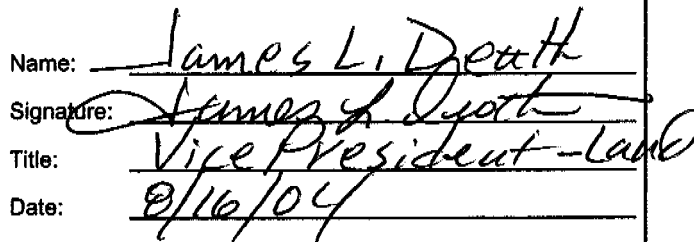 Name: James L. Death
Signature: James L. Death
Title: Vice President - Land
Date: 8/16/04